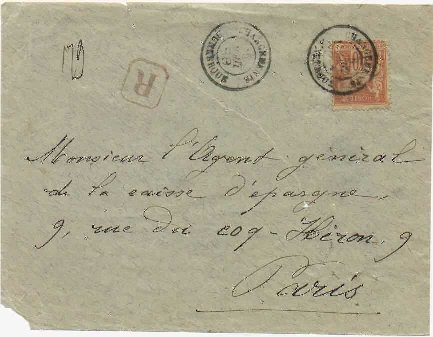 R
Monsieur l'Agent général
de la caisse d'epargne,
9, rue du coq-Héron, 9
Paris